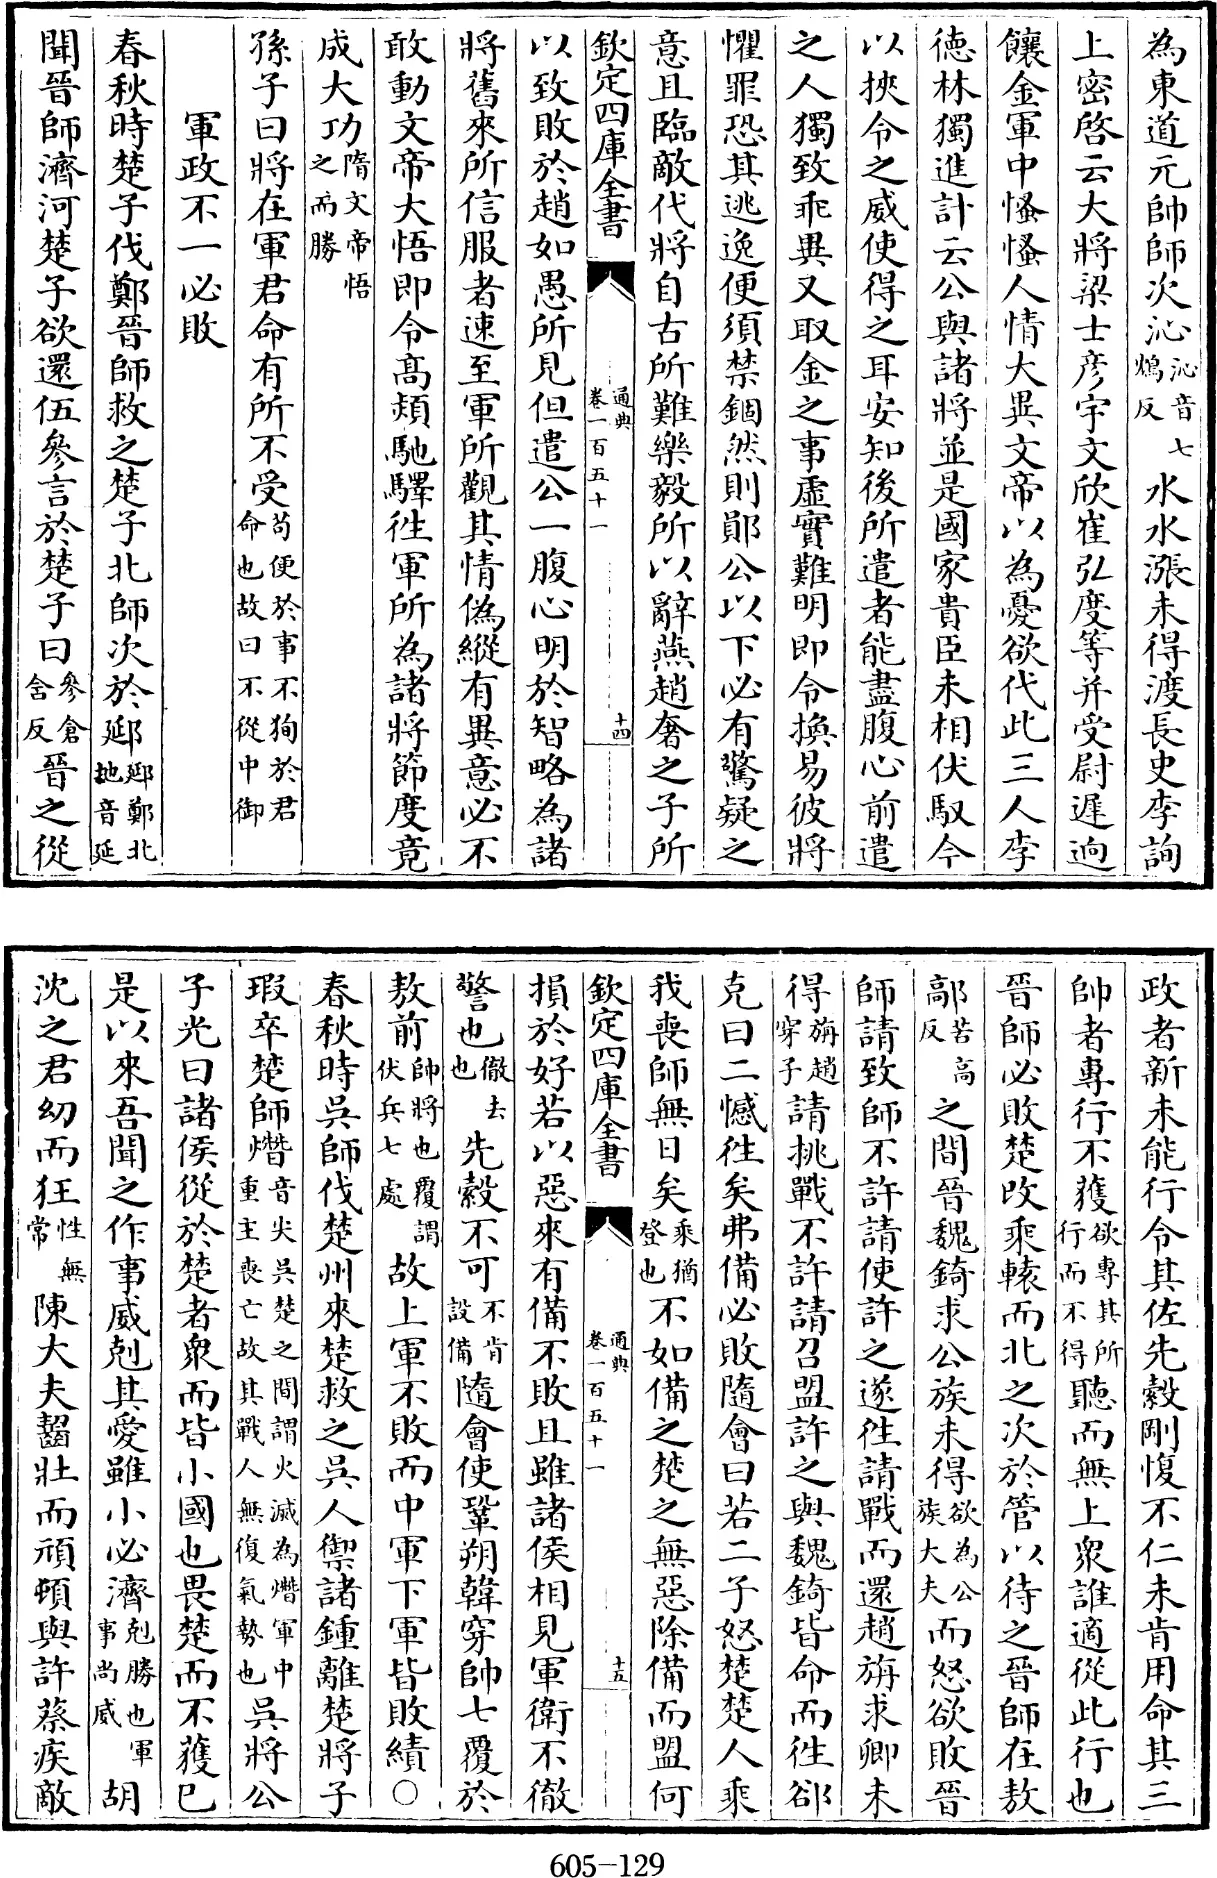 為東道元帥師次沁沁音七鴆反水水漲未得渡長史李詢
上密啓云大將梁士彦宇文欣崔弘度等并受尉遲迥
饟金軍中慅慅人情大異文帝以為憂欲代此三人李
徳林獨進計云公與諸將並是國家貴臣未相伏馭今
以挾令之威使得之耳安知後所遣者能盡腹心前遣
之人獨致乖異又取金之事虛實難明即令換易彼將
懼罪恐其逃逸便須禁錮然則鄖公以下必有驚疑之
意且臨敵代將自古所難樂毅所以辭燕趙奢之子所
欽定四庫全書
通典
卷一百五十一
十四
以致敗於趙如愚所見但遣公一腹心明於智略為諸
將舊來所信服者速至軍所觀其情偽縱有異意必不
敢動文帝大悟即令髙熲馳驛徃軍所為諸將節度竟
成大功隋文帝悟之而勝
孫子曰將在軍君命有所不受苟便於事不狥於君命也故曰不從中御
軍政不一必敗
春秋時楚子伐鄭晉師救之楚子北師次於郔郔鄭北地音延
聞晉師濟河楚子欲還伍參言於楚子曰參倉含反晉之從
政者新未能行令其佐先縠剛愎不仁未肯用命其三
帥者專行不獲欲專其所行而不得聽而無上衆誰適從此行也
晉師必敗楚改乘轅而北之次於管以待之晉師在敖
鄗苦高反之間晉魏錡求公族未得欲為公族大夫而怒欲敗晉
師請致師不許請使許之遂徃請戰而還趙旃求卿未
得旃趙穿子請挑戰不許請召盟許之與魏錡皆命而徃郤
克曰二憾徃矣弗備必敗隨會曰若二子怒楚楚人乘
我喪師無日矣乘猶登也不如備之楚之無惡除備而盟何
欽定四庫全書
通典
卷一百五十一
十五
損於好若以惡來有備不敗且雖諸侯相見軍衛不徹
警也徹去也先縠不可不肯設備隨會使鞏朔韓穿帥七覆於
敖前帥將也覆謂伏兵七處故上軍不敗而中軍下軍皆敗績○
春秋時吳師伐楚州來楚救之吳人禦諸鍾離楚將子
瑕卒楚師熸音尖吳楚之間謂火滅為熸軍中重主喪亡故其戰人無復氣勢也吳將公
子光曰諸侯從於楚者衆而皆小國也畏楚而不獲已
是以來吾聞之作事威剋其愛雖小必濟剋勝也軍事尚威胡
沈之君幼而狂性無常陳大夫齧壯而頑頓與許蔡疾敵
605-129